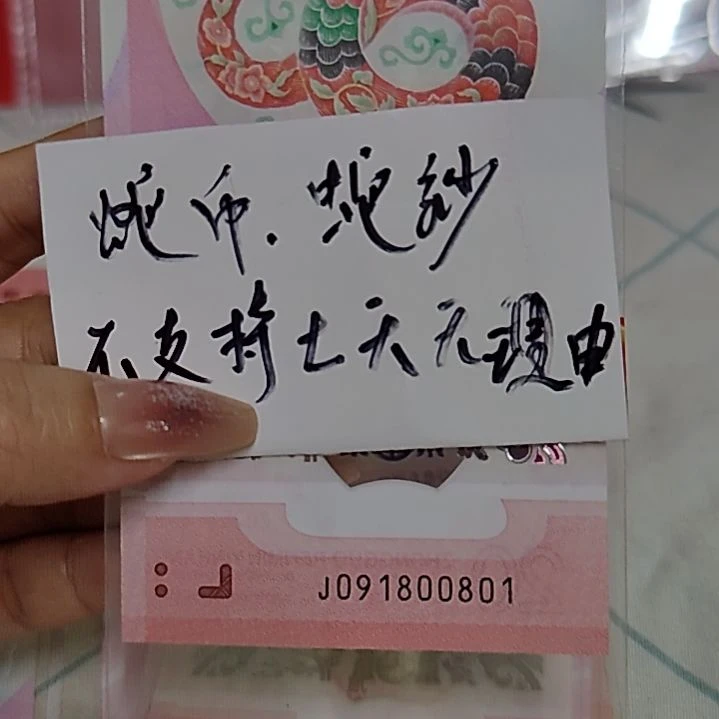 蛇币.蛇钞
不支持七天无理由
J091800801